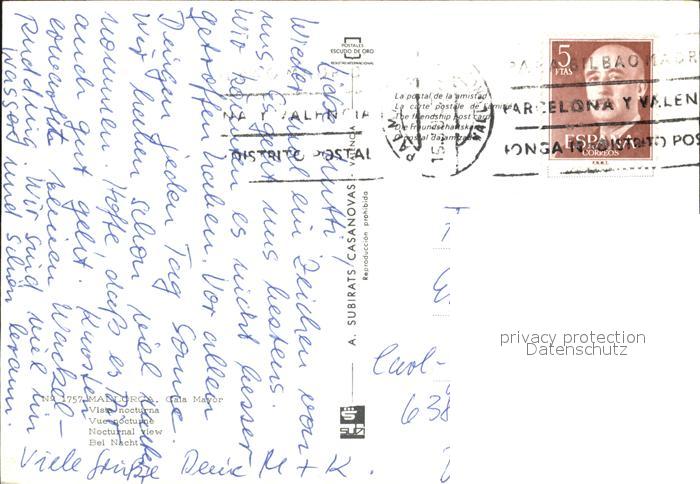 POSTALES
ESCUDO DE ORO
REGISTRO INTERNACIONAL
La postal de la amistad
La carte postale de l'amitié
The friendship post card
Die Freundschaftskarte
5
PTAS
ESPAÑA
CORREOS
F.N.M.T.
PARA BILBAO MADR
BARCELONA Y VALEN
PONGA DISTRITO POS
NA Y VALENCIA
DISTRITO POSTAL
PALM
VALE
15
Mutti,
Wieder mal ein Zeichen von
uns. Es geht uns bestens.
Wir hätten es nicht besser
getroffen haben. Vor allen
Dingen jeden Tag Sonne.
Wir haben schon viel
nommen. Hoffe, daß es Dir
auch gut geht.
keinen Wackel-
Pudding. Wir sind viel im
Wasser und schon braun.
Viele Grüße Deine M + K.
A. SUBIRATS CASANOVAS - VALENCIA
Reproducción prohibida
Carl-
638
Nº 1757 MALLORCA. Cala Mayor
Vista nocturna
Vue nocturne
Nocturnal view
Bei Nacht
privacy protection
Datenschutz